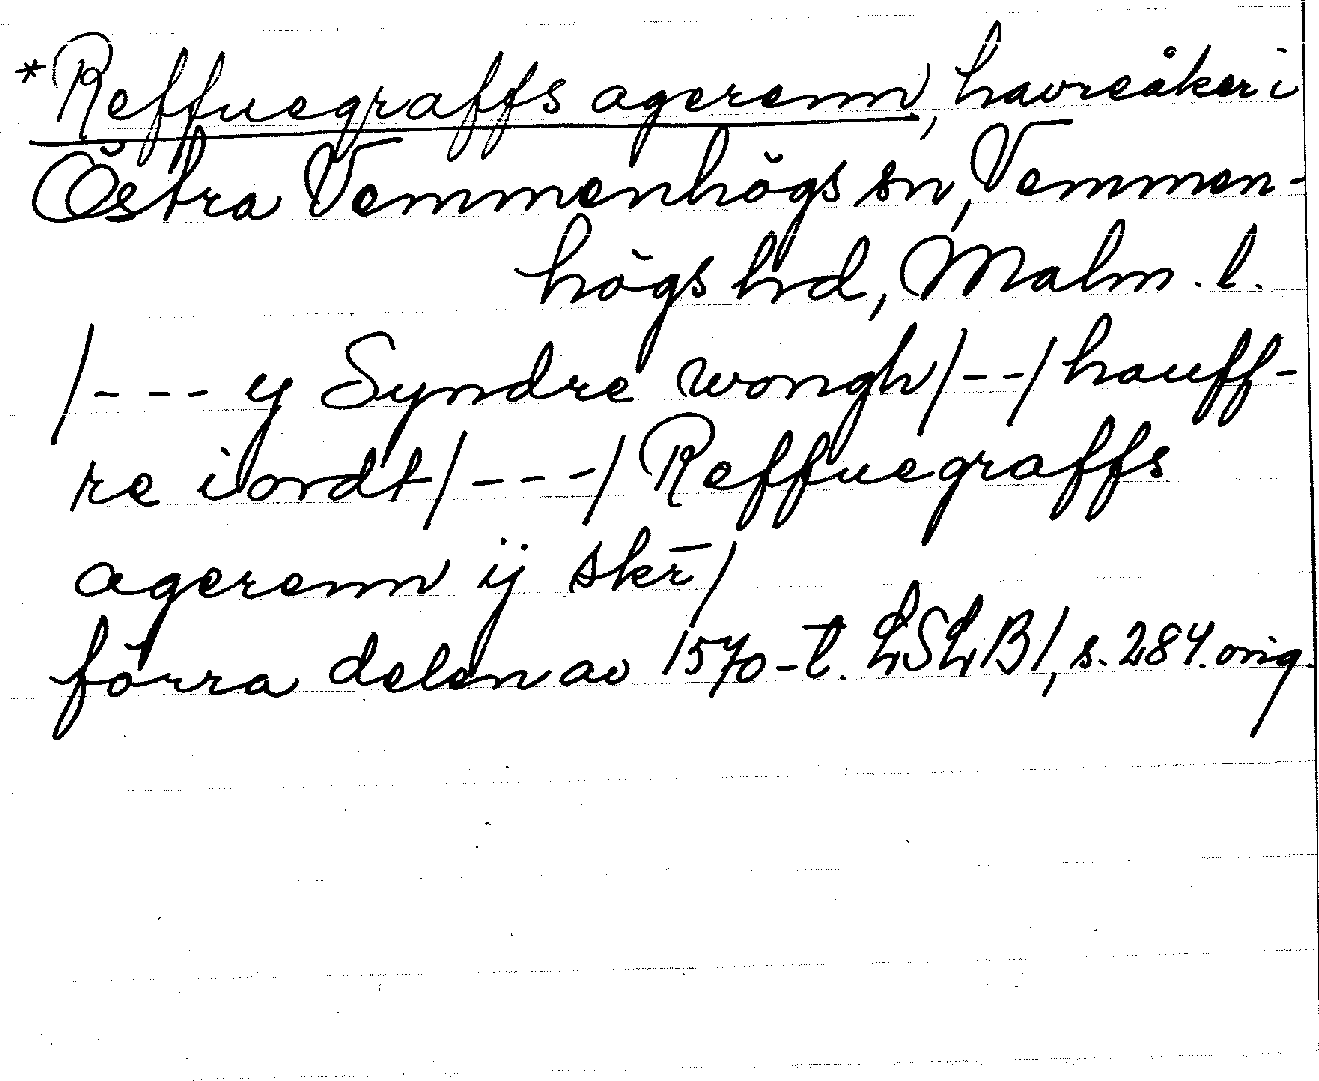 *Reffuegraffs agerenn, havreåker i
Östra Vemmenhögs sn, Vemmen-
högs hrd, Malm. l.
/--- y Syndre wongh/--/hauff-
re iordt/---/Reffuegraffs
agerenn ij skr̄/
förra delen av 1570-t. LSLB1, s. 284. orig.